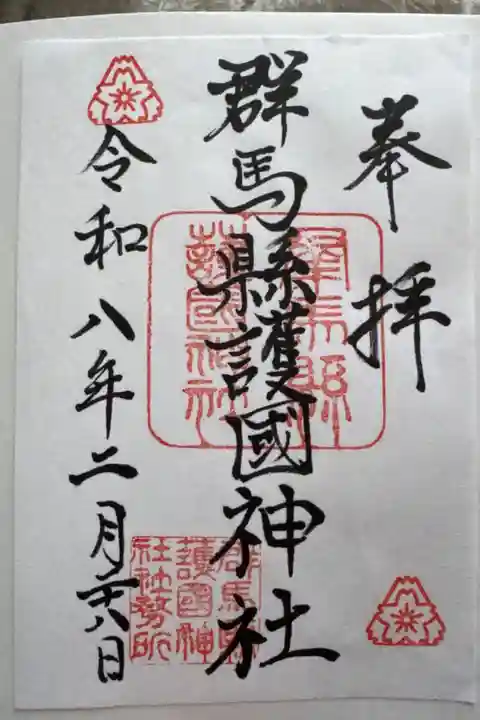 奉拝
群馬縣護國神社
群馬縣護國神社
群馬縣護國神社社務所
令和八年二月廿八日